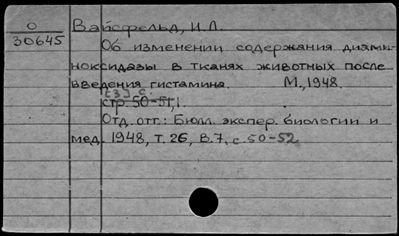 О
30645
Вайсфельд, И.Л.
Об изменении содержания диами-
ноксидазы в тканях животных после
введения гистамина. М., 1948.
[3] с.
стр. 50-51,1.
Отд. отт.: Бюлл. экспер. биологии и
мед. 1948, т. 26, в. 7, с. 50-52